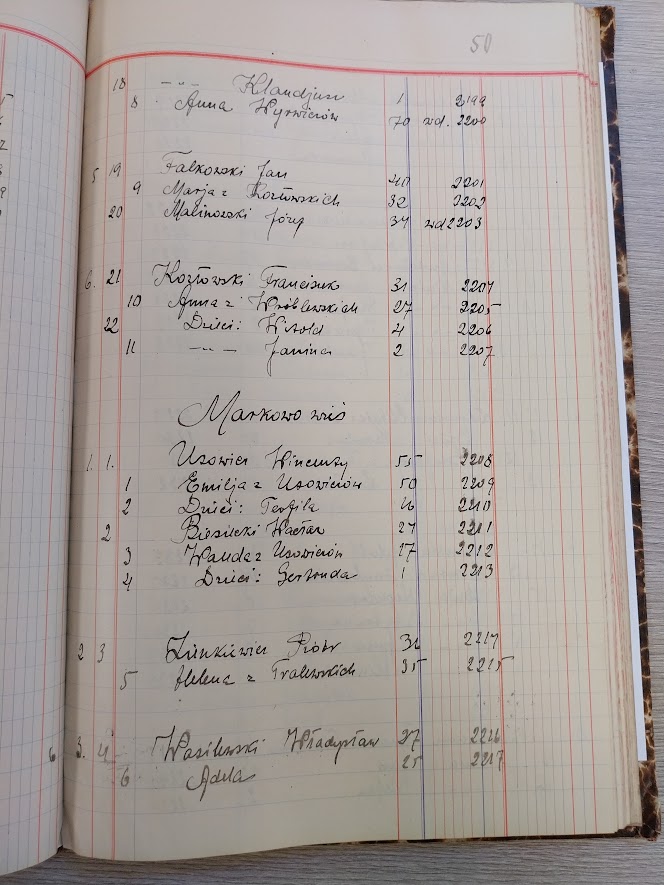 50
18 -"- Klaudjusz 1 2199
8 Anna Wyrwiczów 70 wd. 2200
5 19 Falkowski Jan 40 2201
9 Marja z Kozłowskich 32 2202
20 Malinowski Józef 34 wd 2203
6. 21 Kozłowski Franciszek 31 2204
10 Anna z Wróblewskich 27 2205
22 Dzieci: Witold 4 2206
11 -"- Janina 2 2207
Markowo wieś
1. 1. Uzowicz Wincenty 55 2208
1 Emilja z Uzowiczów 50 2209
2 Dzieci: Teofila 16 2210
2 Wacław 27 2211
3 Wanda z Uzowiczów 17 2212
4 Dzieci: Gertruda 1 2213
2 3 Zinkiewicz Piotr 2214
5 Helena z 35 2215
6 3. 4 Wasilewski Władysław 27 2216
6 Adela 25 2217